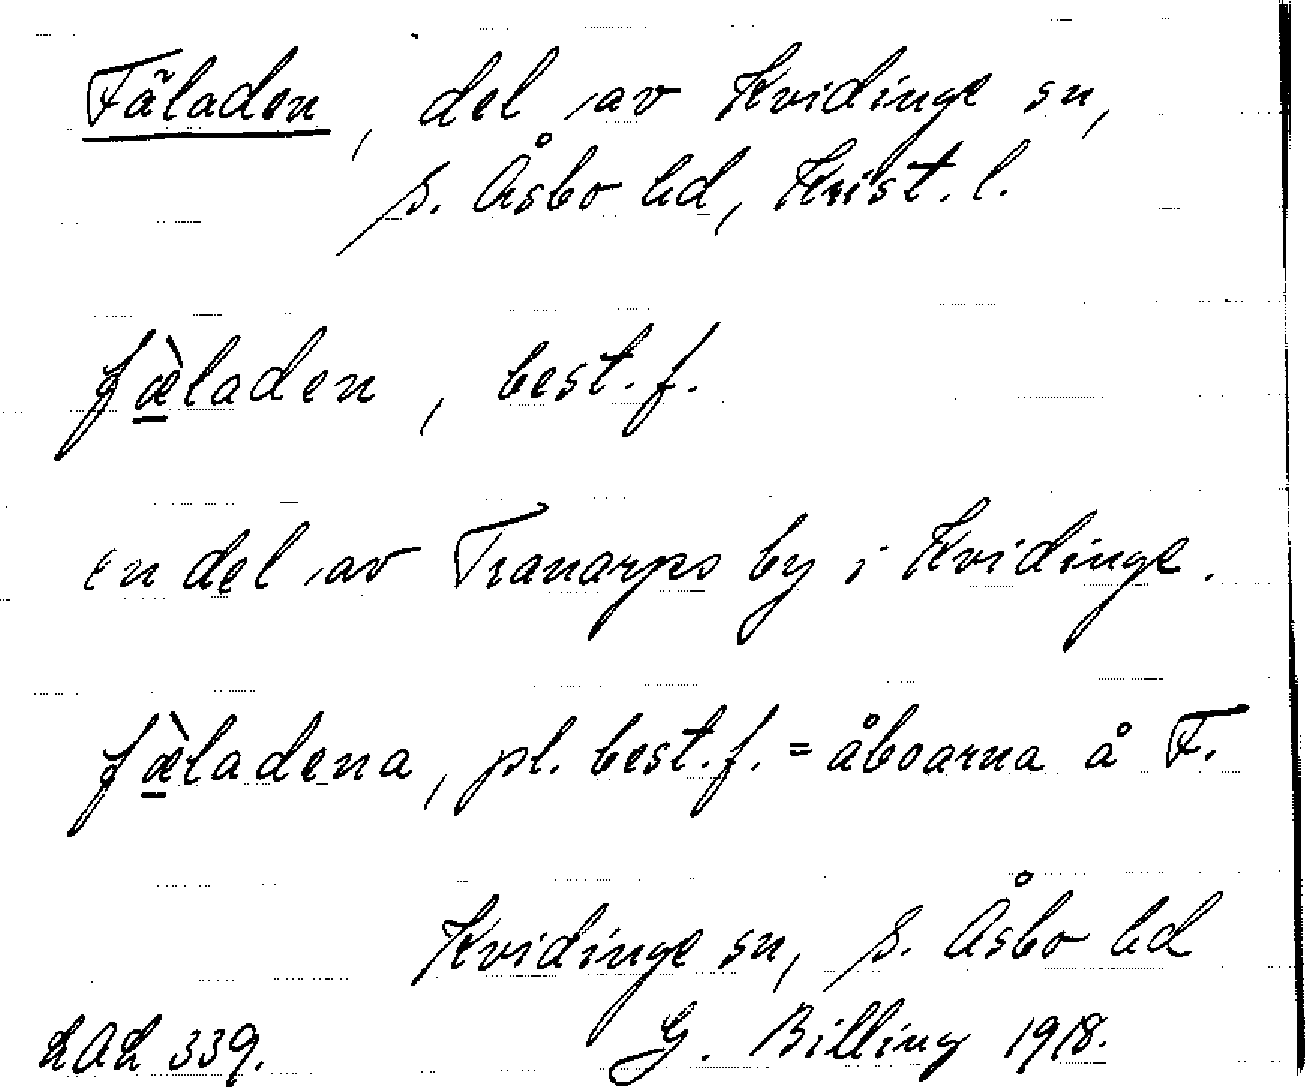 Fäladen, del av Kvidinge sn,
S. Åsbo hd, Krist. l.
fæ̀laden, best. f.
en del av Tranarps by i Kvidinge.
fæ̀ladena, pl. best. f. = åboarna å F.
Kvidinge sn, S. Åsbo hd
LAL 339. G. Billing 1918.